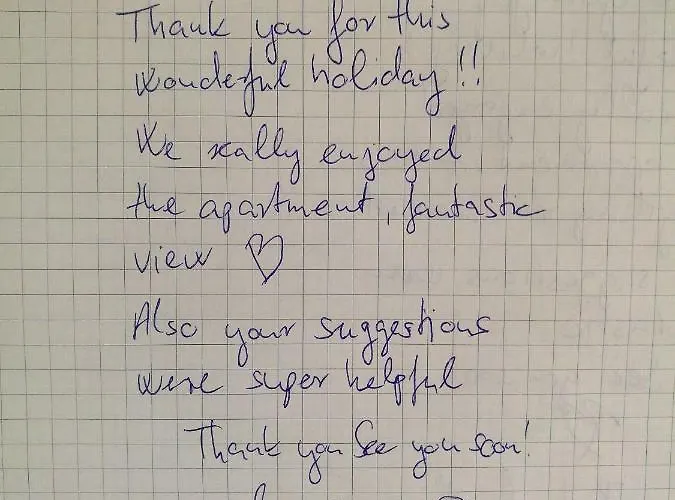 Thank you for this
wonderful holiday!!
We really enjoyed
the apartment, fantastic
view ♡
Also your suggestions
were super helpful
Thank you See you soon!